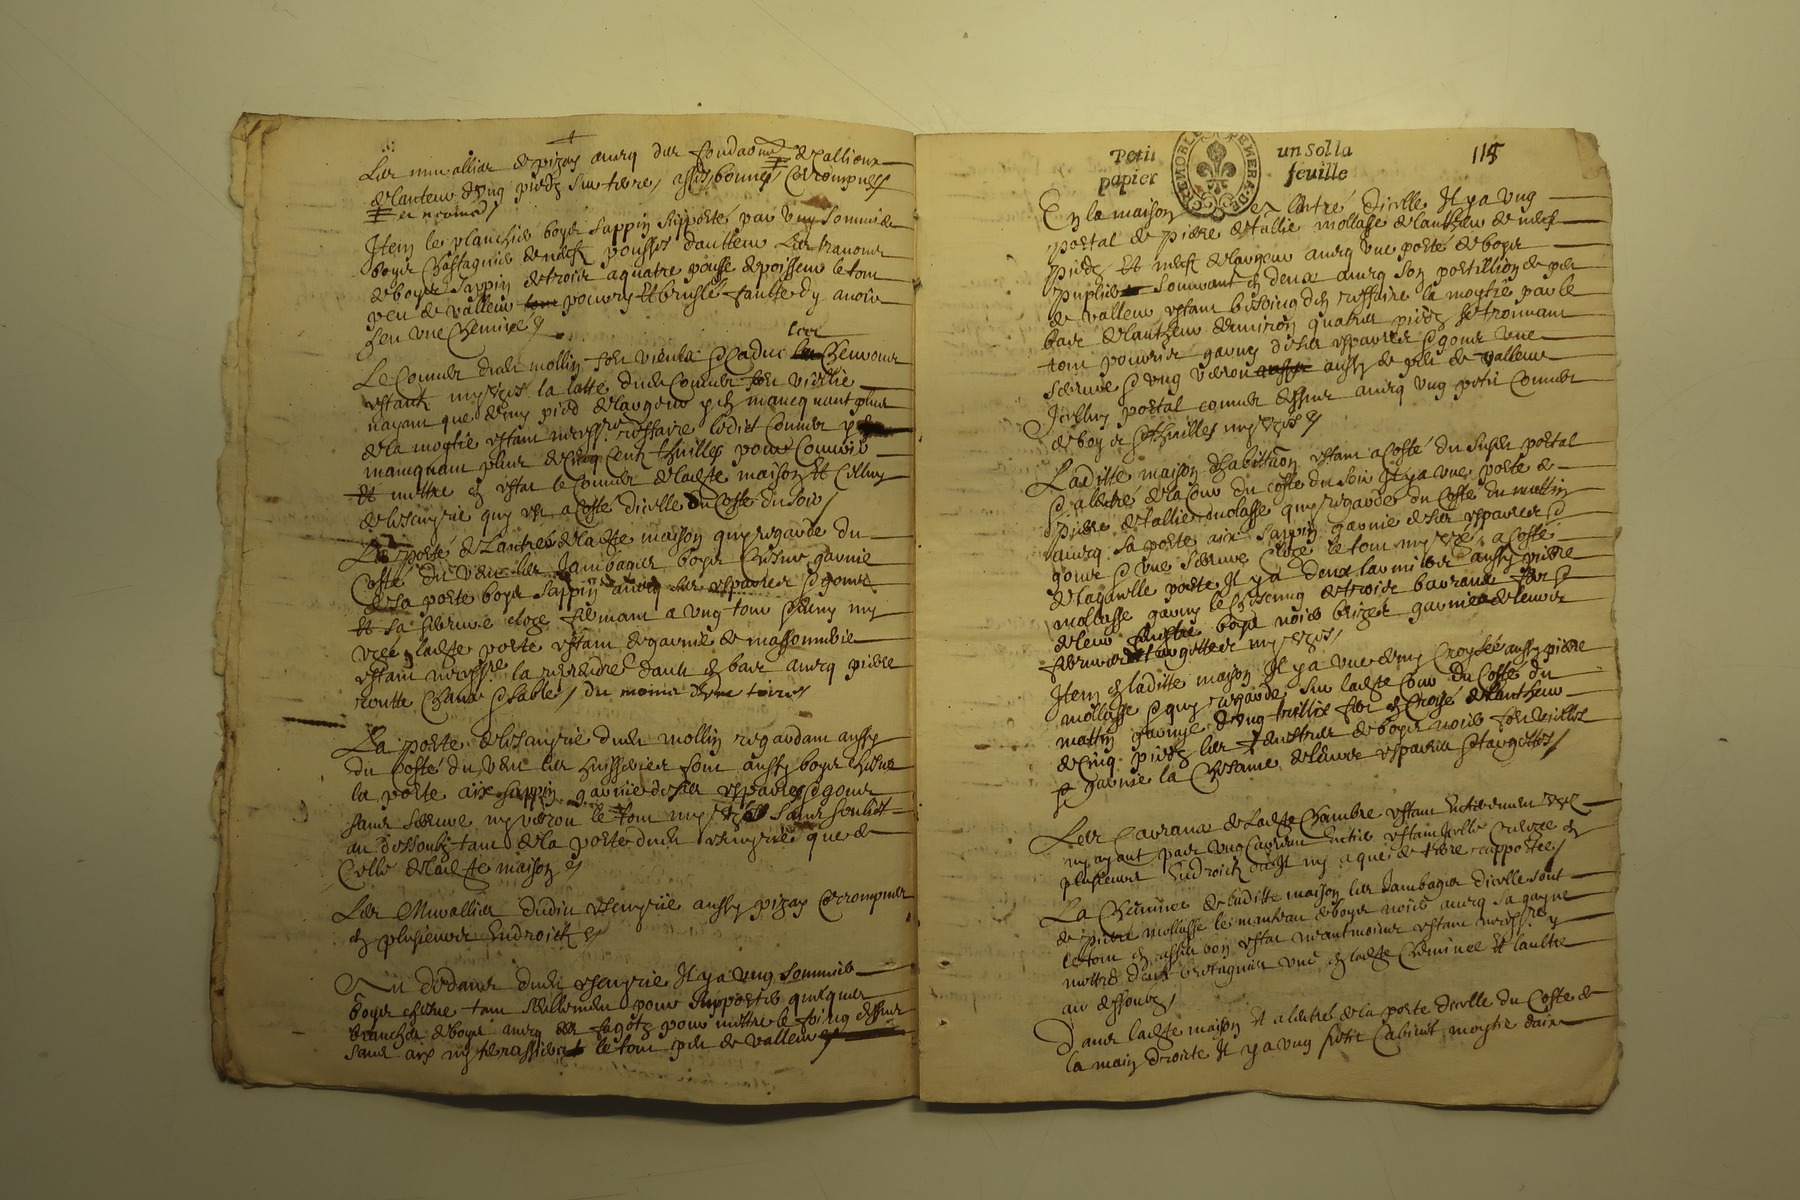 Les murallies de pizay avecq des fondaon de callioux
de lauteur dung piedz sur terre, assez bonnes Corrompues
Item le planchier boys sappin supporté par ung sommier
boys Chastagnier de neufz pousses dautteur Les travons
de boys sappin de trois a quatre pousse depoisseur le tout
peu de valleur pourry Et bruslé faulte dy avoir
heu une Cheminee
Le Couver dudit mollin fort vieux Caduc les Chevrons
estantz usez la latte dudit Couver fort vieillie
nayant que demy pied de largeur y en manquant plus
de la moytié estant necessre reffaire ledict Couver
manquant plus de cinq Centz thuilles pour Couvrir
Et mettre en estat le Couver de ladte maison Et Celluy
de lescuyrie quy est a Costé dicelle du Costé du soir
La porte de Lantrée de ladte maison quy regarde du
Costé du vent les Jambages boys Chesne garnie
de sa porte boys sappin avecq ses esparres gonts
Et sa serrure cloze fermant a ung tour Demy
usee ladte porte estant degarnie de massonnerie
estant necessre la reprendre dault en bas avecq pierre
routte Chaux sable, du moins dune toise
La porte de lescuyrie dudit mollin regardant aussy
du Costé du vent les huissieres sont aussy boys Chesne
la porte aix sappin garnie de ses esparres gonts
sans serrure ny veroul le tout my usé sans seulliet
au dessoubz tant de la porte dudit escuyrie que de
Celle de ladte maison
Les Murallies dudit escuyrie aussy pizay Corrompues
en plusieurs Endroictz
Au dedans dudit escuyrie Il y a ung sommier
boys chesne tant seullement pour supporter quelques
branches de boys avecq des fagotz pour mettre le foing dessus
sans aix ny terrassier le tout peu de valleur
Petit papier un sol la feuille
115
En la maison et a lantré dicelle Il y a ung
portal de pierre de tallie mollasse de lautheur de neuf
piedz Et neufz de largeur avecq une porte de boys
puplier souvrant en deux avecq son portillion de peu
de valleur estant bessoing den reffaire la moytié par le
bas de lautheur denviron quattre piedz se trouvant
tout pourrie garny de ses esparres gonts une
serrure ung veroul aussy de peu de valleur
Icelluy portal couver dessus avecq ung petit Couver
de boys thuilles my usés
Laditte maison dhabittaon estant a Costé du susdit portal
a lentré de la Cour du costé du soir Il y a une porte de
pierre de tallie mollasse quy regarde du Costé du mattin
avecq sa porte aix sappin garnie de ses esparres
gonts une serrure Cloze le tout my uzé, a Costé
de laquelle porte Il y a deux larmieres aussy pierre
mollasse garny le chescung de trois barraux fer
de leur fenestre boys noier brizer garnies de leurs
ferrures targettes my usés,
Item en laditte maison Il y a une demy Croyzée aussy pierre
mollasse quy regarde sur ladte Cour du Costé du
mattin garnye dung trellis fer en Croyé de lautheur
de Cinq piedz les fenestres de boys noier fort vieillies
garnie la Chescune de leurs esparres targettes,
Les Carraux de Ladte Chambre estant Entierement usez
ny ayant pas ung Carreau Entier estant Icelle Creuze en
plusieurs Endroictz ou Il ny a que de terre rapportée,
La Cheminee de laditte maison les Jambages dicelle sont
de pierre mollasse le manteau de boys noier avecq sa gayne
le tout en assez bon estat neantmoins estant necessre y
mettre deux bretagnies une en ladte Cheminee Et laultre
au dessoubz,
Dans ladte maison Et a lentré de la porte dicelle du Costé de
la main droicte Il y a ung petit Cabinet moytié daix